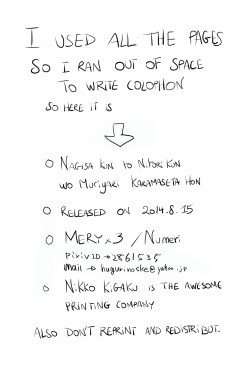 I USED ALL THE PAGES
SO I RAN OUT OF SPACE
TO WRITE COLOPHON
SO HERE IT IS
NAGISA KIN to NItORI KIN
WO MURIYARI KARAMASETA HON
RELEASED ON 2014.8.15
MERY×3 / Numeri
PiXiV ID → 2861535
mail → hugurinoske@yahoo.jp
NIKKO KIGAKU IS THE AWESOME
PRINTING COMPANY
ALSO DON'T REPRINT AND REDISTRIBUT.